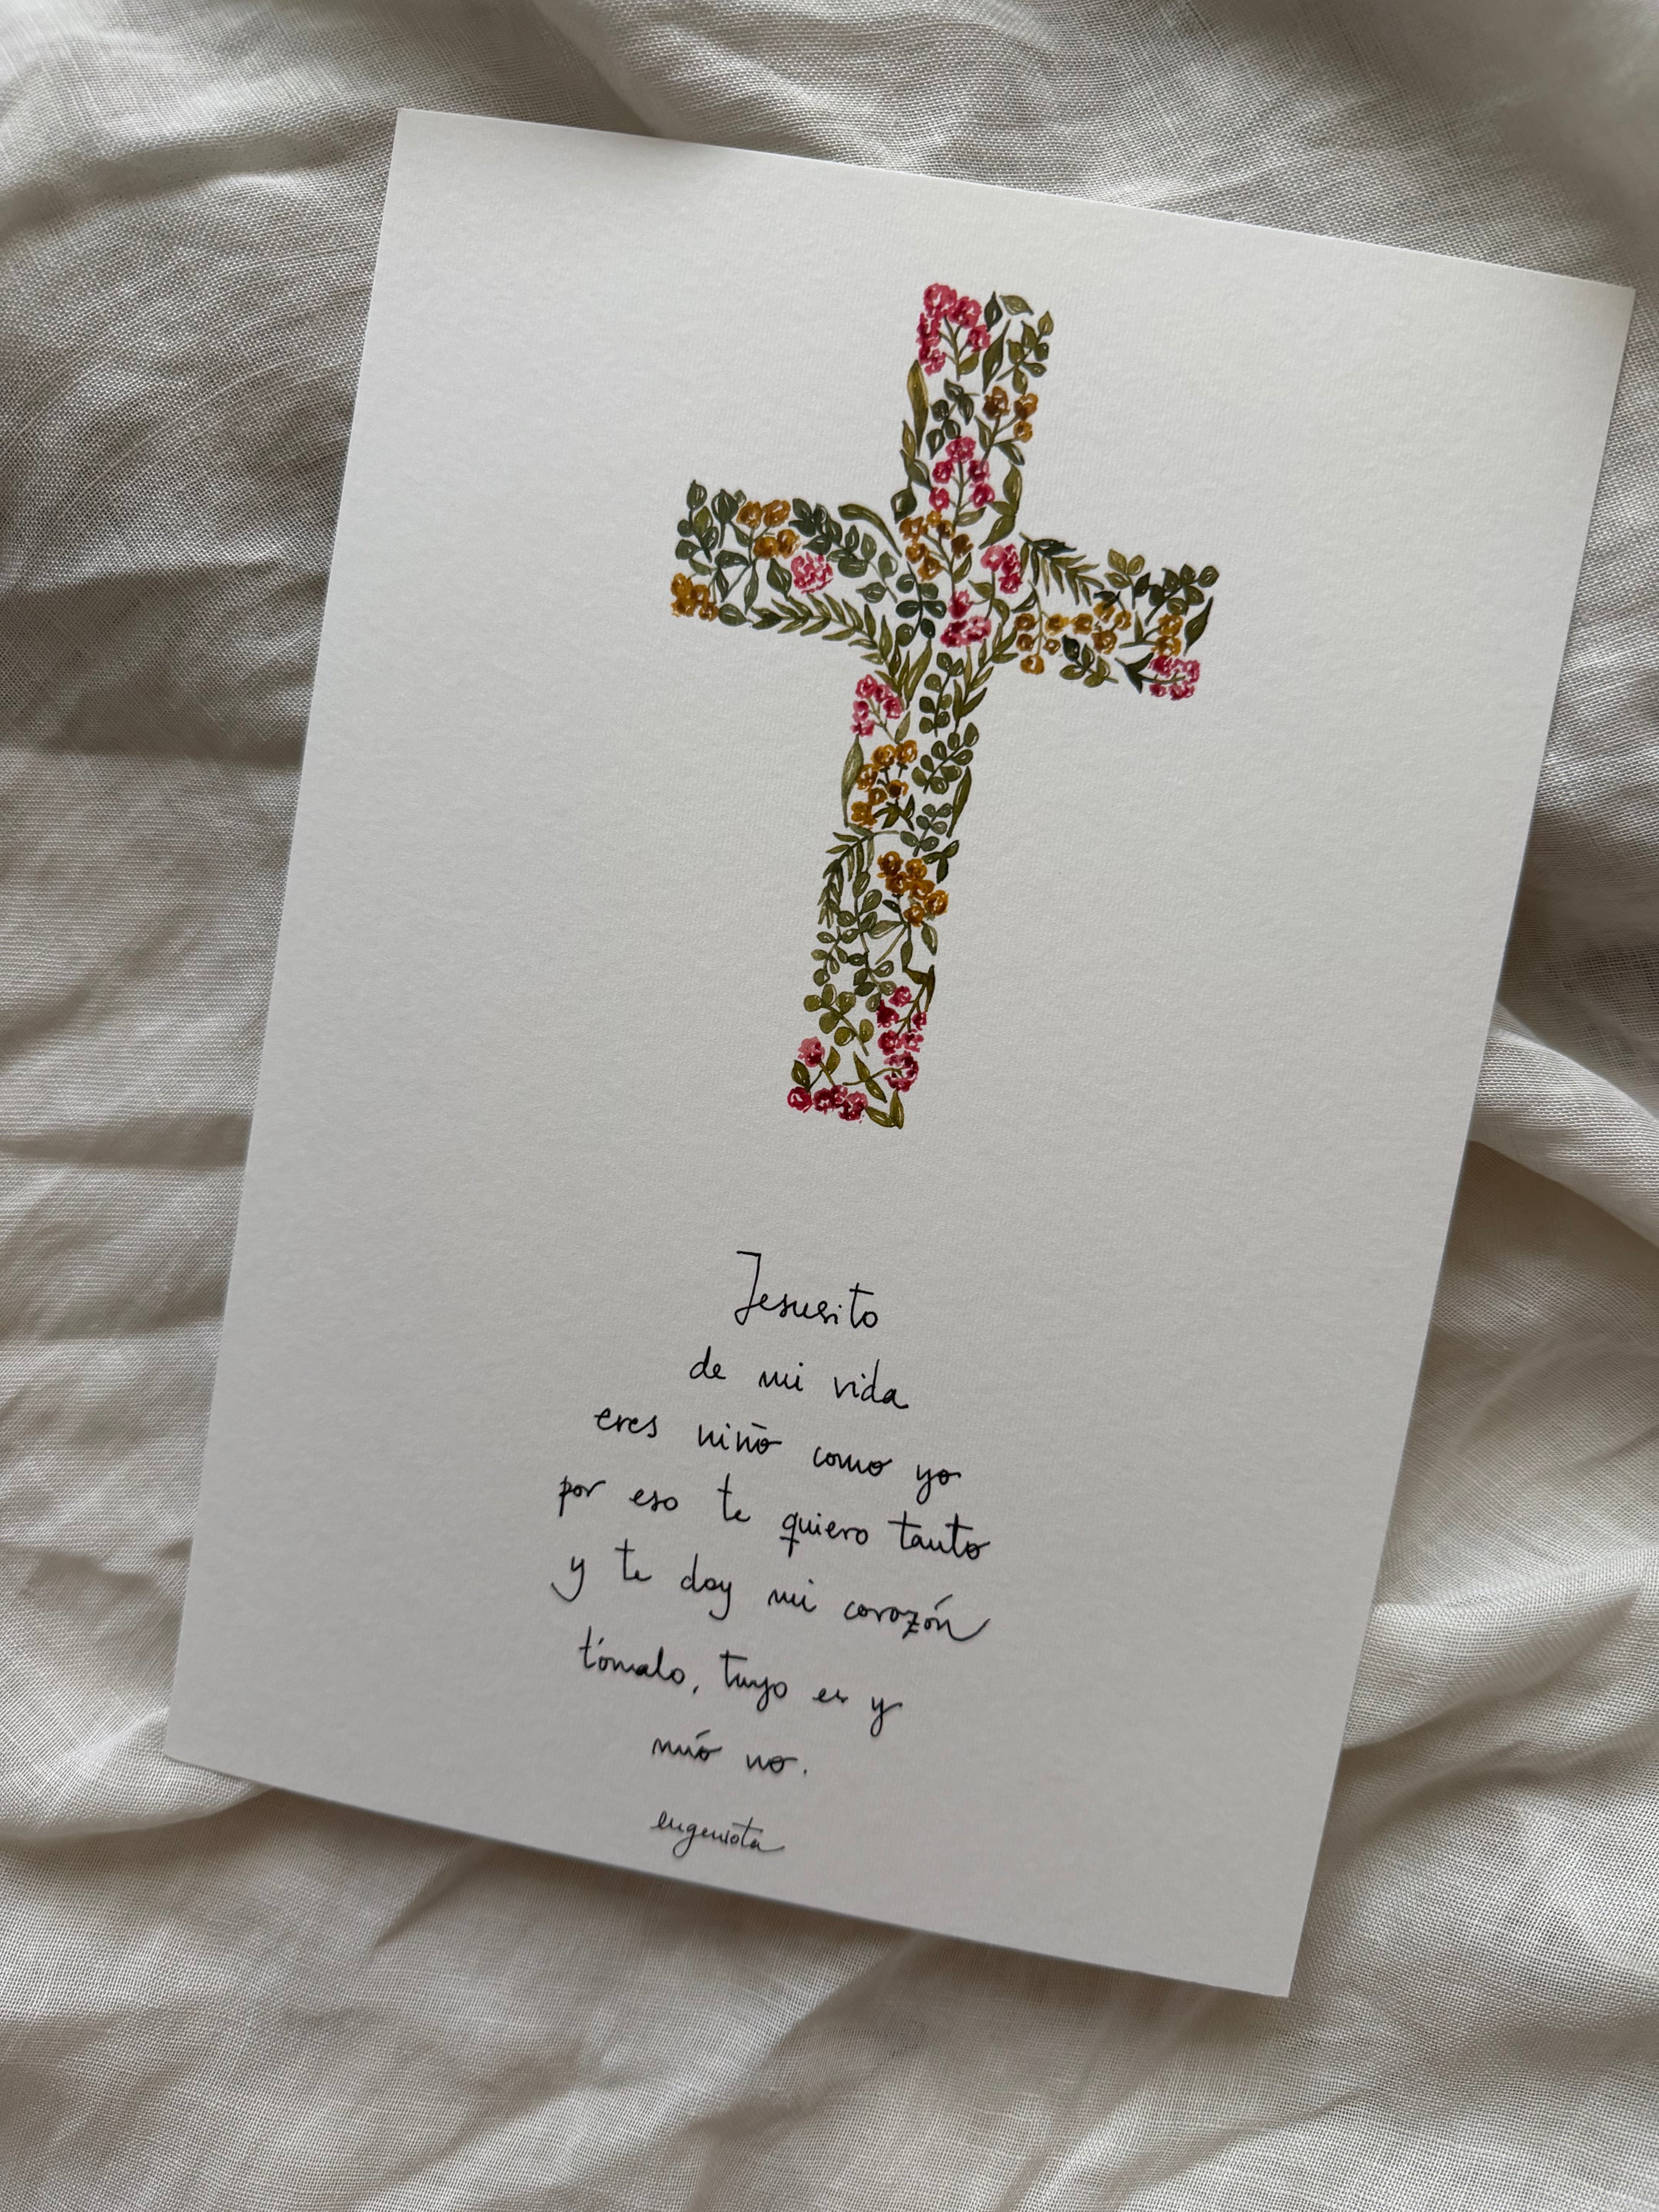 Jesusito
de mi vida
eres niño como yo
por eso te quiero tanto
y te doy mi corazón
tómalo, tuyo es y
mío no.
eugeniota